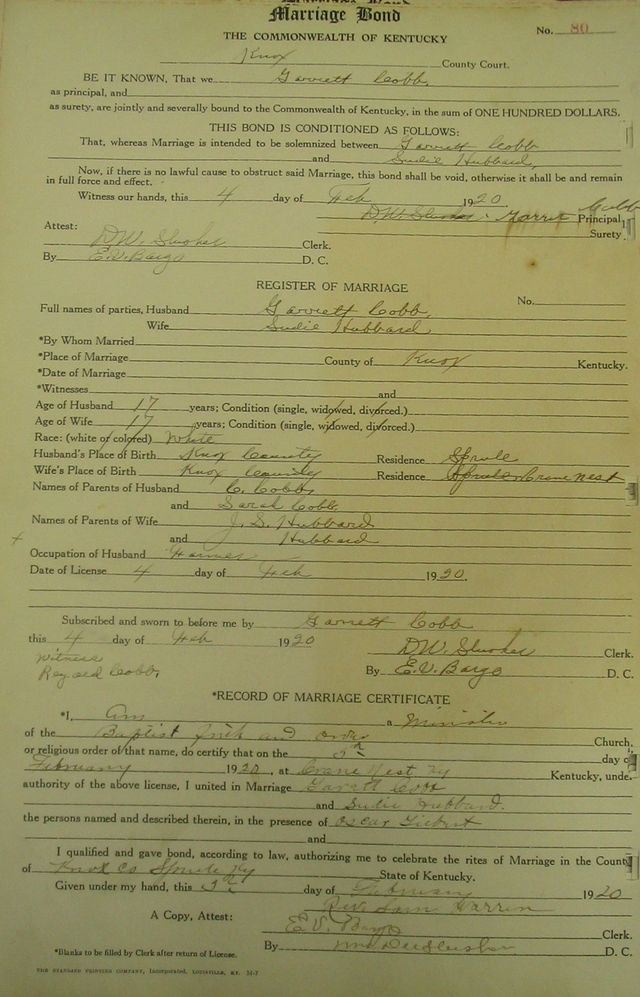 Marriage Bond
No. 80
THE COMMONWEALTH OF KENTUCKY
Knox County Court.
BE IT KNOWN, That we Garrett Cobb,
as principal, and
as surety, are jointly and severally bound to the Commonwealth of Kentucky, in the sum of ONE HUNDRED DOLLARS.
THIS BOND IS CONDITIONED AS FOLLOWS:
That, whereas Marriage is intended to be solemnized between Garrett Cobb
and Sudie Hubbard,
Now, if there is no lawful cause to obstruct said Marriage, this bond shall be void, otherwise it shall be and remain
in full force and effect.
Witness our hands, this 4 day of Feb 1920
D.W. Slusher - Garrit Cobb Principal
Surety.
Attest:
D.W. Slusher Clerk.
By E.V. Bargo D. C.
REGISTER OF MARRIAGE
No.
Full names of parties, Husband Garrett Cobb,
Wife Sudie Hubbard
*By Whom Married
*Place of Marriage County of Knox Kentucky.
*Date of Marriage
*Witnesses and
Age of Husband 17 years; Condition (single, widowed, divorced.)
Age of Wife 17 years; Condition (single, widowed, divorced.)
Race: (white or colored) White
Husband's Place of Birth Knox County Residence Sprule
Wife's Place of Birth Knox County Residence Sprule Crane Nest
Names of Parents of Husband C. Cobb,
and Sarah Cobb
Names of Parents of Wife J. S. Hubbard
and Hubbard
Occupation of Husband Farmer
Date of License 4 day of Feb 1920.
Subscribed and sworn to before me by Garrett Cobb
this 4 day of Feb 1920 D.W. Slusher Clerk.
Witness
Cobb, By E.V. Bargo D. C.
*RECORD OF MARRIAGE CERTIFICATE
*I, am a Minister
of the Baptist faith and order Church,
or religious order of that name, do certify that on the 5th day of
February 1920, at Crane Nest Ky Kentucky, unde
authority of the above license, I united in Marriage Garett Cobb
and Sudie Hubbard.
the persons named and described therein, in the presence of Oscar
and
I qualified and gave bond, according to law, authorizing me to celebrate the rites of Marriage in the County
of Knox Co Sprule Ky State of Kentucky.
Given under my hand, this 5th day of February 1920
Rev. Sam
A Copy, Attest: E.V. Bargo Clerk.
By D. C.
*Blanks to be filled by Clerk after return of License.
THE STANDARD PRINTING COMPANY, Incorporated, LOUISVILLE, KY.